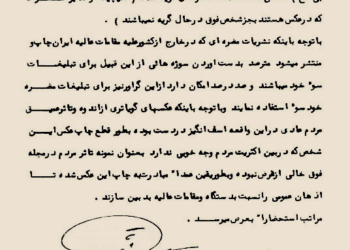 که درعکس هستند بجزشخص فوق درحال گریه نمیباشند ) .
با توجه باینکه نشریات مضره ای که درخارج ازکشورعلیه مقامات عالیه ایران چاپ و
منتشر میشود مترصد بدست اوردن سوژه هائی از این قبیل برای تبلیغات
سوء خود میباشند و صددرصد امکان دارد ازاین گراورنیز برای تبلیغات مضره
خود سوء استفاده نمایند وبا توجه باینکه عکسهای گویاتری ازاندوه وتاثرعمیق
مردم عادی دراین واقعه اسف انگیز دردست بوده بطور قطع چاپ عکس این
شخص که دربین اکثریت مردم وجه خوبی ندارد بعنوان نمونه تاثر مردم درمجله
فوق خالی ازغرض نبوده وبطوریقین عمدا" مبادرت به چاپ این عکس شده تا
اذهان عمومی رانسبت بدستگاه ومقامات عالیه بدبین سازند .
مراتب استحضارا" بعرض میرسد .